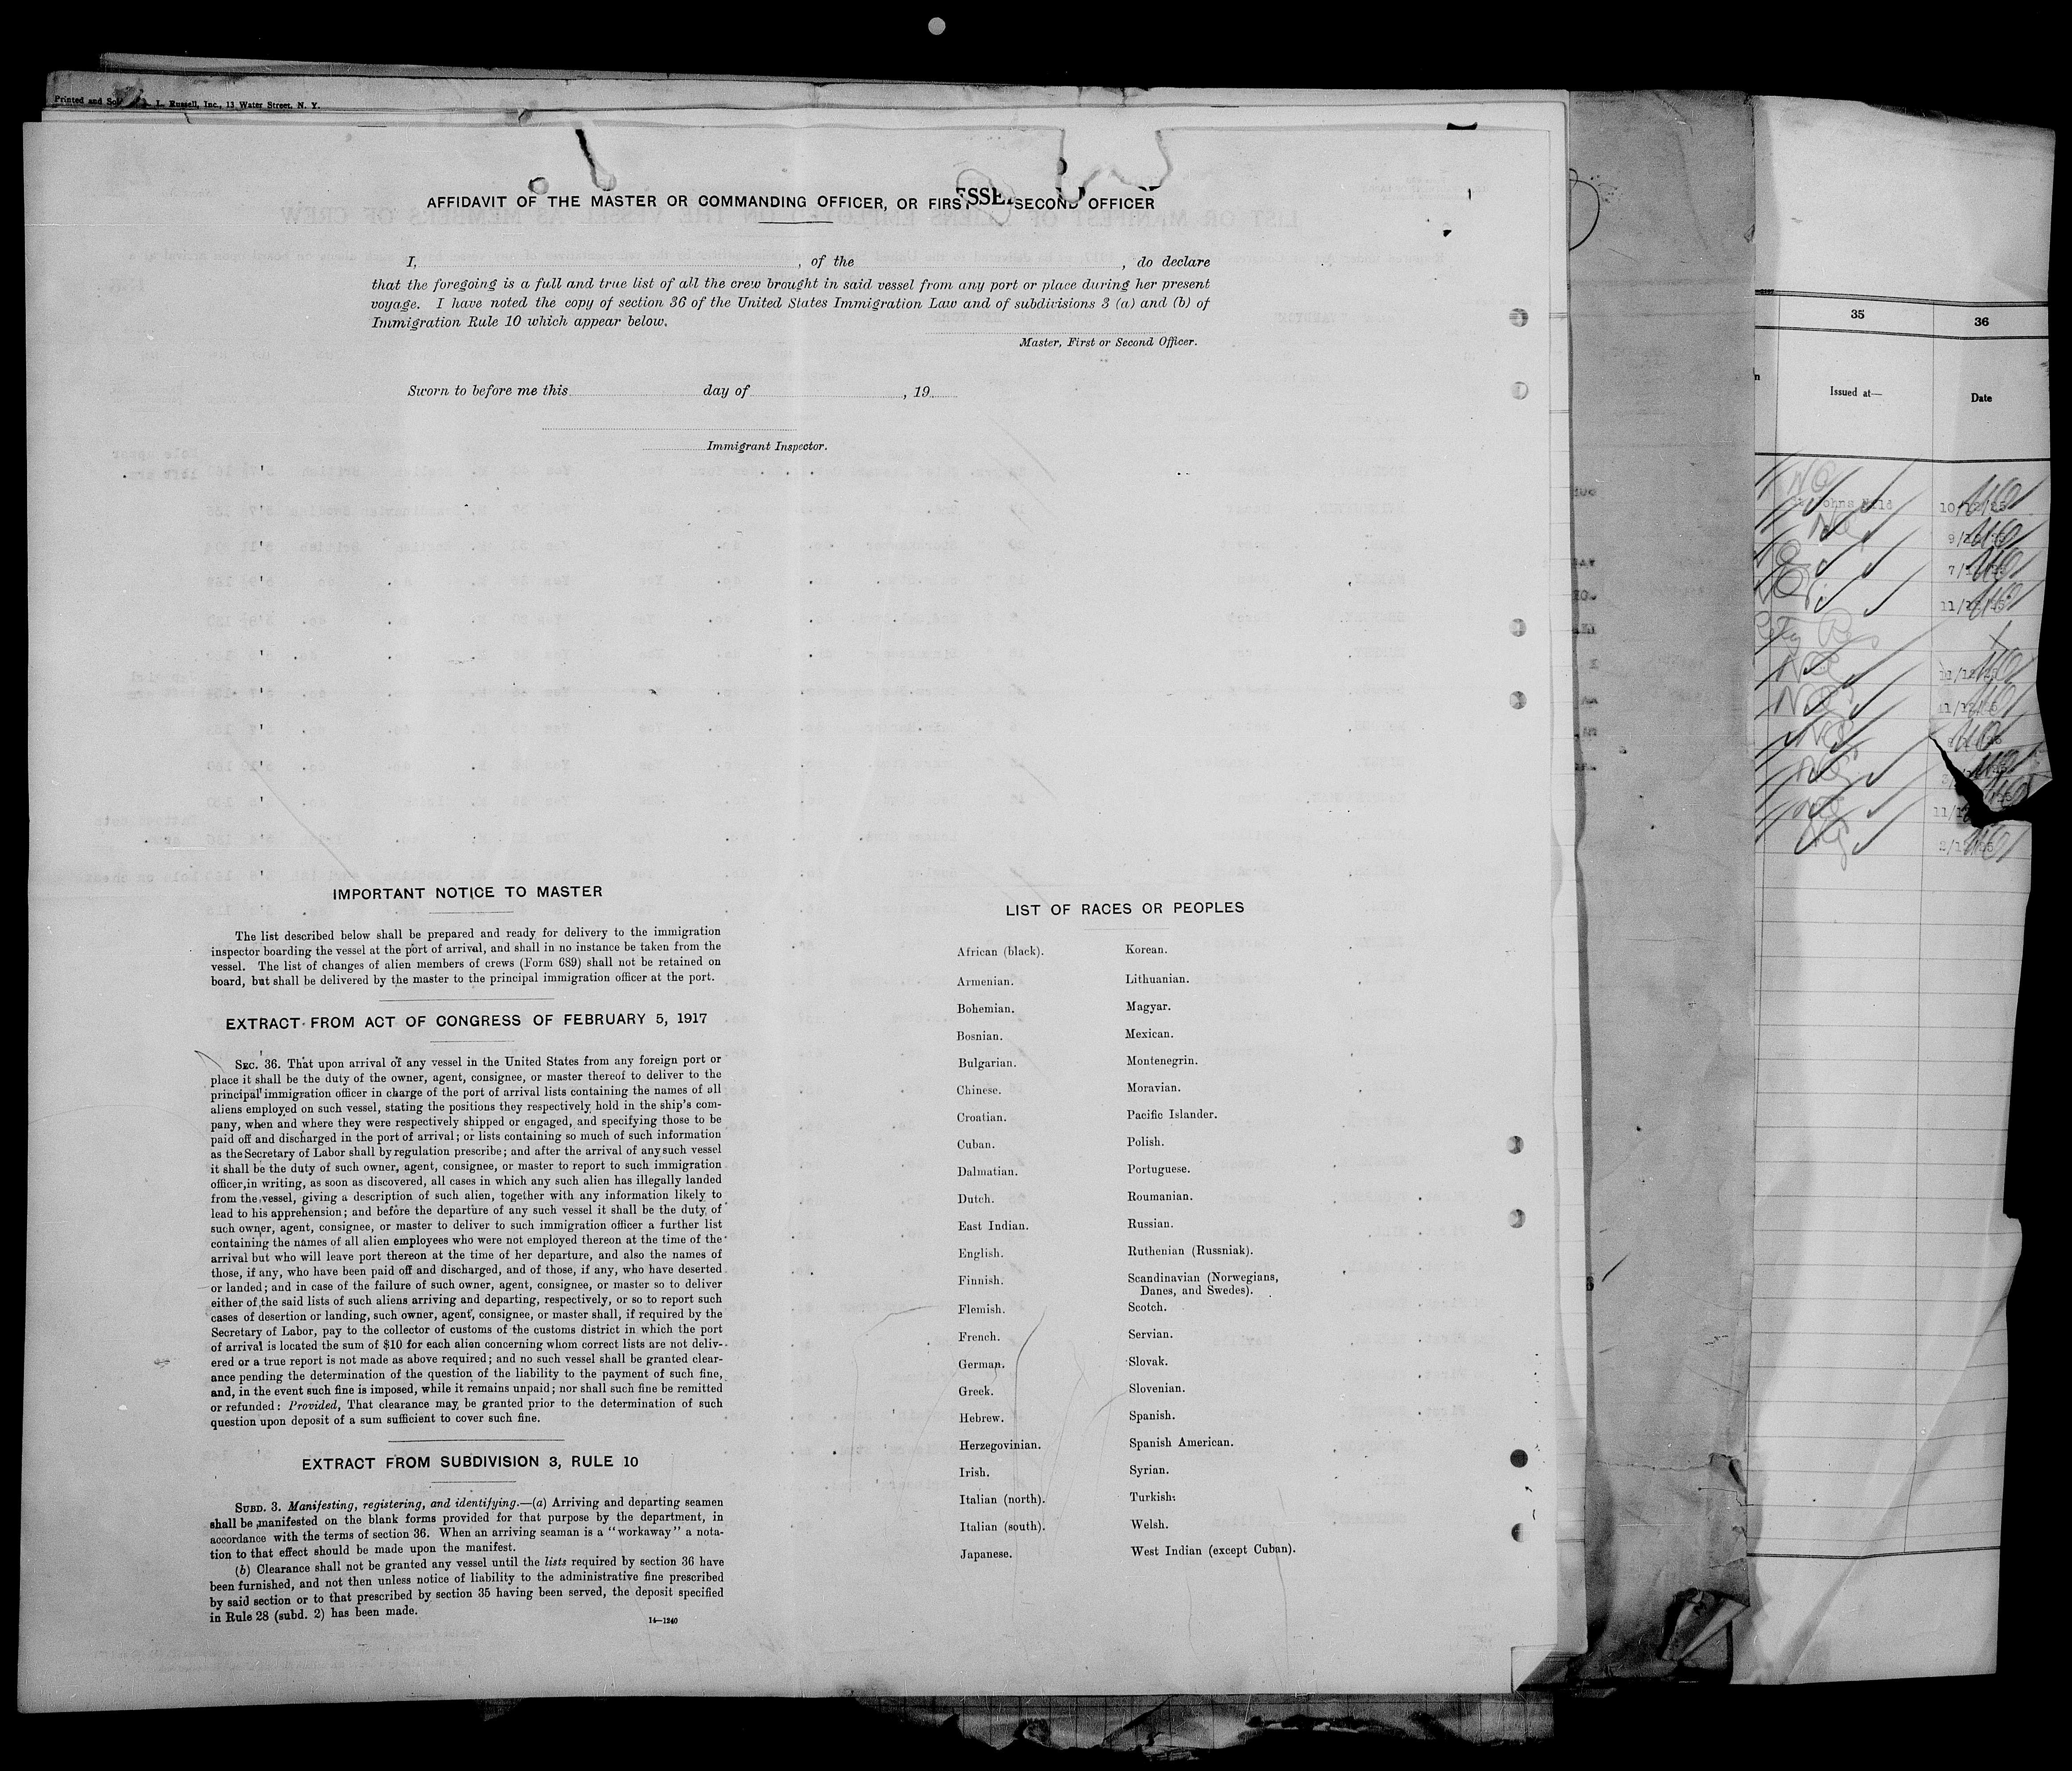 Printed and
L. Russell, Inc., 13 Water Street, N. Y.
AFFIDAVIT OF THE MASTER OR COMMANDING OFFICER, OR FIRST SECOND OFFICER
ESSE
I, , of the , do declare
that the foregoing is a full and true list of all the crew brought in said vessel from any port or place during her present
voyage. I have noted the copy of section 36 of the United States Immigration Law and of subdivisions 3 (a) and (b) of
Immigration Rule 10 which appear below.
Master, First or Second Officer.
Sworn to before me this day of , 19
Immigrant Inspector.
IMPORTANT NOTICE TO MASTER
The list described below shall be prepared and ready for delivery to the immigration
inspector boarding the vessel at the port of arrival, and shall in no instance be taken from the
vessel. The list of changes of alien members of crews (Form 689) shall not be retained on
board, but shall be delivered by the master to the principal immigration officer at the port.
EXTRACT FROM ACT OF CONGRESS OF FEBRUARY 5, 1917
SEC. 36. That upon arrival of any vessel in the United States from any foreign port or
place it shall be the duty of the owner, agent, consignee, or master thereof to deliver to the
principal immigration officer in charge of the port of arrival lists containing the names of all
aliens employed on such vessel, stating the positions they respectively hold in the ship's com-
pany, when and where they were respectively shipped or engaged, and specifying those to be
paid off and discharged in the port of arrival; or lists containing so much of such information
as the Secretary of Labor shall by regulation prescribe; and after the arrival of any such vessel
it shall be the duty of such owner, agent, consignee, or master to report to such immigration
officer, in writing, as soon as discovered, all cases in which any such alien has illegally landed
from the vessel, giving a description of such alien, together with any information likely to
lead to his apprehension; and before the departure of any such vessel it shall be the duty of
such owner, agent, consignee, or master to deliver to such immigration officer a further list
containing the names of all alien employees who were not employed thereon at the time of the
arrival but who will leave port thereon at the time of her departure, and also the names of
those, if any, who have been paid off and discharged, and of those, if any, who have deserted
or landed; and in case of the failure of such owner, agent, consignee, or master so to deliver
either of the said lists of such aliens arriving and departing, respectively, or so to report such
cases of desertion or landing, such owner, agent, consignee, or master shall, if required by the
Secretary of Labor, pay to the collector of customs of the customs district in which the port
of arrival is located the sum of $10 for each alien concerning whom correct lists are not deliv-
ered or a true report is not made as above required; and no such vessel shall be granted clear-
ance pending the determination of the question of the liability to the payment of such fine,
and, in the event such fine is imposed, while it remains unpaid; nor shall such fine be remitted
or refunded: Provided, That clearance may be granted prior to the determination of such
question upon deposit of a sum sufficient to cover such fine.
EXTRACT FROM SUBDIVISION 3, RULE 10
SUBD. 3. Manifesting, registering, and identifying.—(a) Arriving and departing seamen
shall be manifested on the blank forms provided for that purpose by the department, in
accordance with the terms of section 36. When an arriving seaman is a "workaway" a nota-
tion to that effect should be made upon the manifest.
(b) Clearance shall not be granted any vessel until the lists required by section 36 have
been furnished, and not then unless notice of liability to the administrative fine prescribed
by said section or to that prescribed by section 35 having been served, the deposit specified
in Rule 28 (subd. 2) has been made.
14—1240
LIST OF RACES OR PEOPLES
African (black).
Armenian.
Bohemian.
Bosnian.
Bulgarian.
Chinese.
Croatian.
Cuban.
Dalmatian.
Dutch.
East Indian.
English.
Finnish.
Flemish.
French.
German.
Greek.
Hebrew.
Herzegovinian.
Irish.
Italian (north).
Italian (south).
Japanese.
Korean.
Lithuanian.
Magyar.
Mexican.
Montenegrin.
Moravian.
Pacific Islander.
Polish.
Portuguese.
Roumanian.
Russian.
Ruthenian (Russniak).
Scandinavian (Norwegians,
Danes, and Swedes).
Scotch.
Servian.
Slovak.
Slovenian.
Spanish.
Spanish American.
Syrian.
Turkish.
Welsh.
West Indian (except Cuban).
35
36
Issued at—
Date